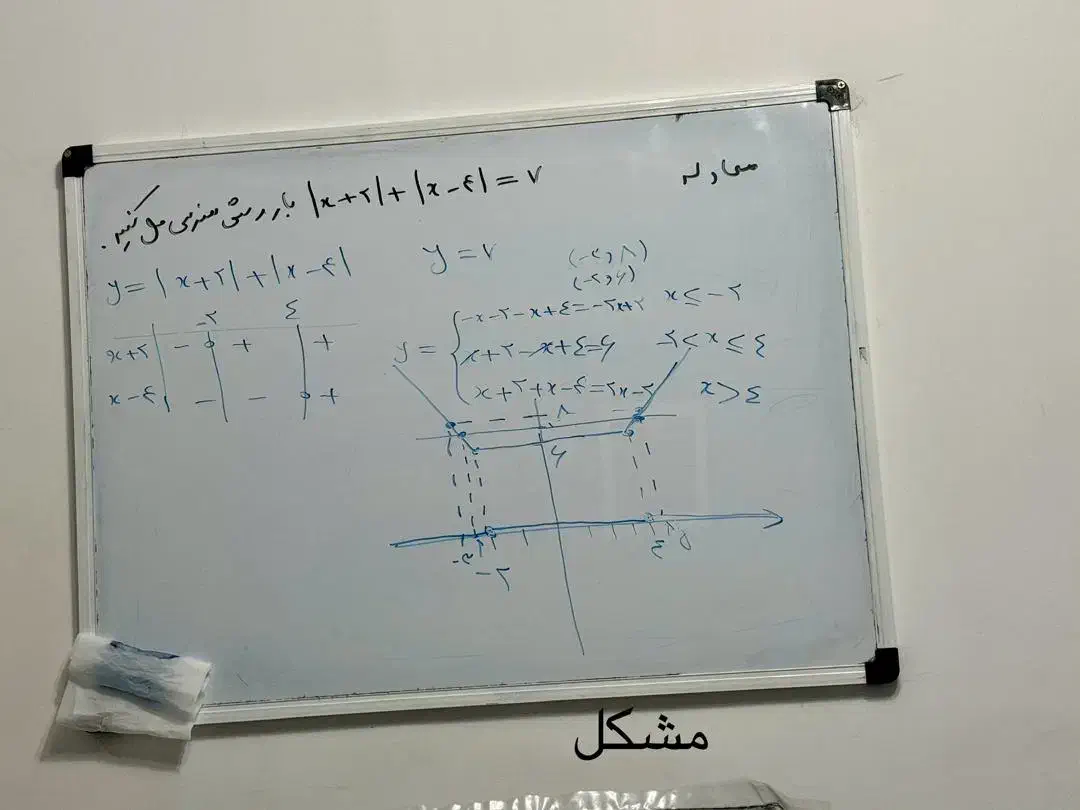 معادله |x+۲|+|x-۴|=۷ با روش هندسی حل کنید.
y=|x+۲|+|x-۴|
y=۷
(-۳و۸)
(-۲و۶)
-۲ ٤
x+۲ - + +
x-۴ - - +
y= {
-x-۲-x+٤=-۲x+۲ x≤-۲
x+۲-x+٤=۶ ۲<x≤٤
x+۲+x-۴=۲x-۲ x>٤
۸
۶
-۳
-۲
٤
۵
مشکل